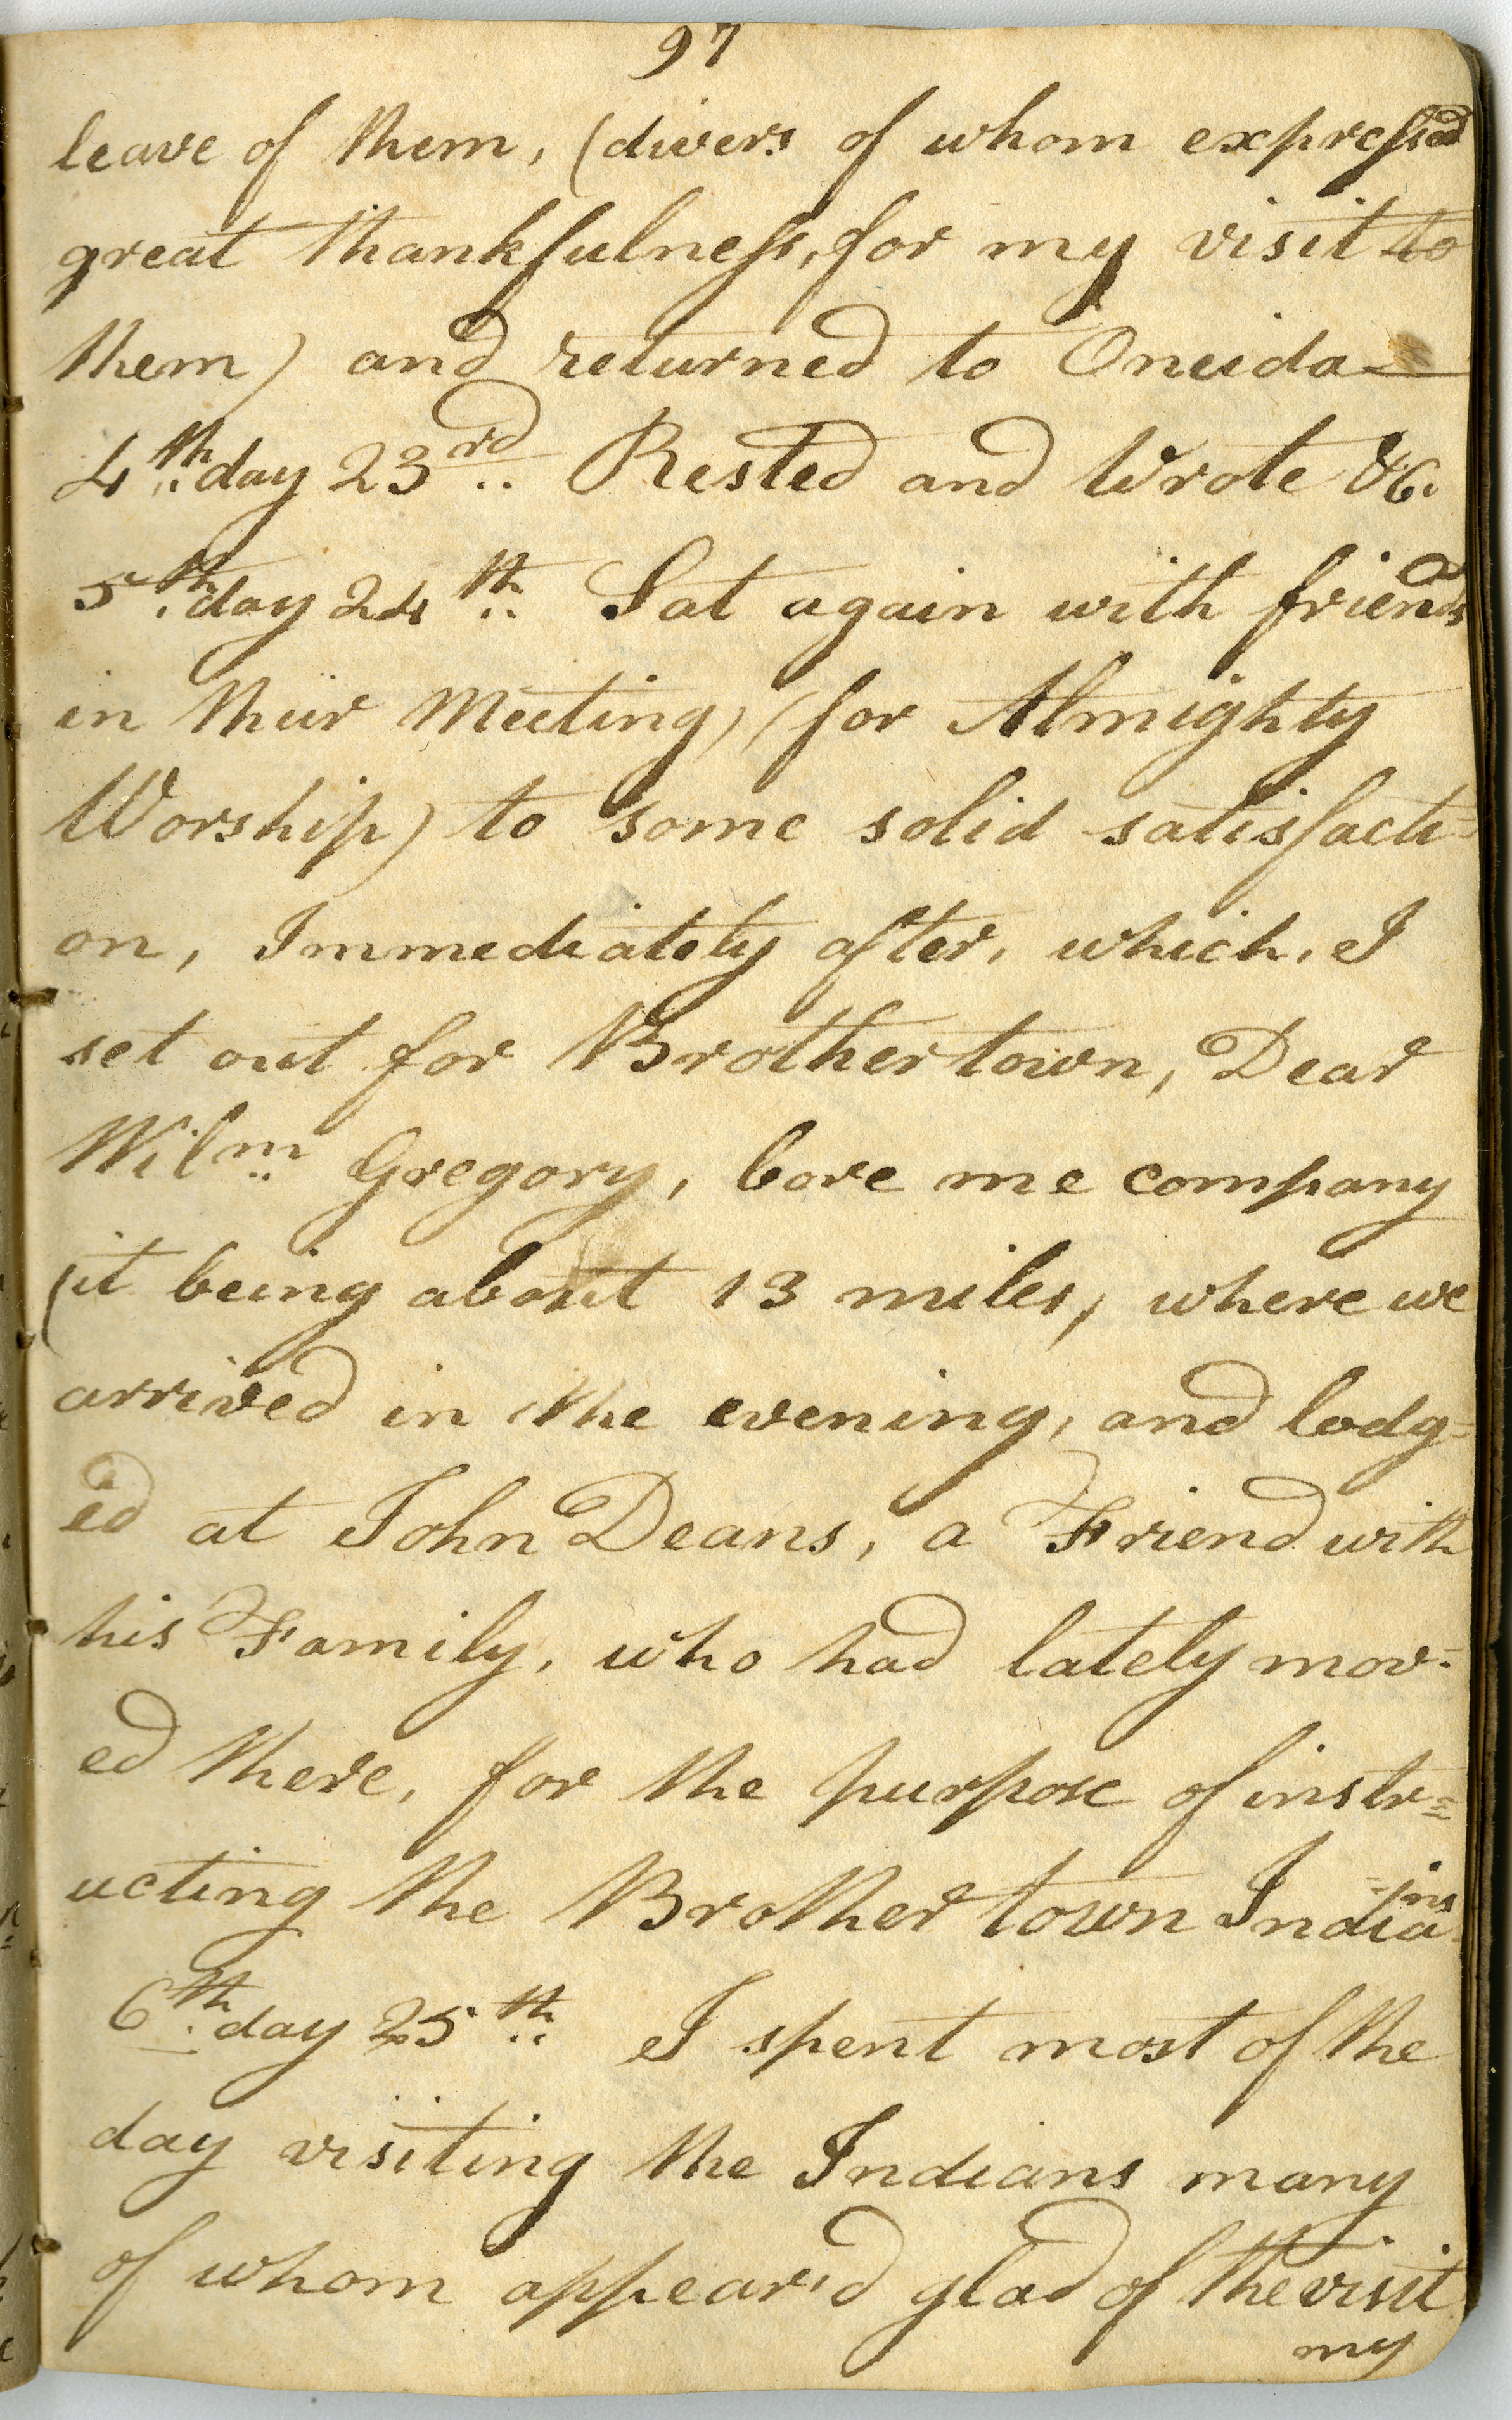 97
leave of them, (divers of whom expressed
great thankfulness, for my visit to
them) and returned to Oneida—
4th day 23rd Rested and Wrote &c.
5th day 24th Sat again with friends
in their Meeting, (for Almighty
Worship) to some solid satisfacti=
on, Immediately after, which, I
set out for Brothertown, Dear
Wilm Gregory, bore me company
(it being about 13 miles, where we
arrived in the evening, and lodg=
ed at John Deans, a Friend with
his Family, who had lately mov=
ed there, for the purpose of instr=
ucting the Brothertown India=ins
6th day 25th I spent most of the
day visiting the Indians many
of whom appear'd glad of the visit
my